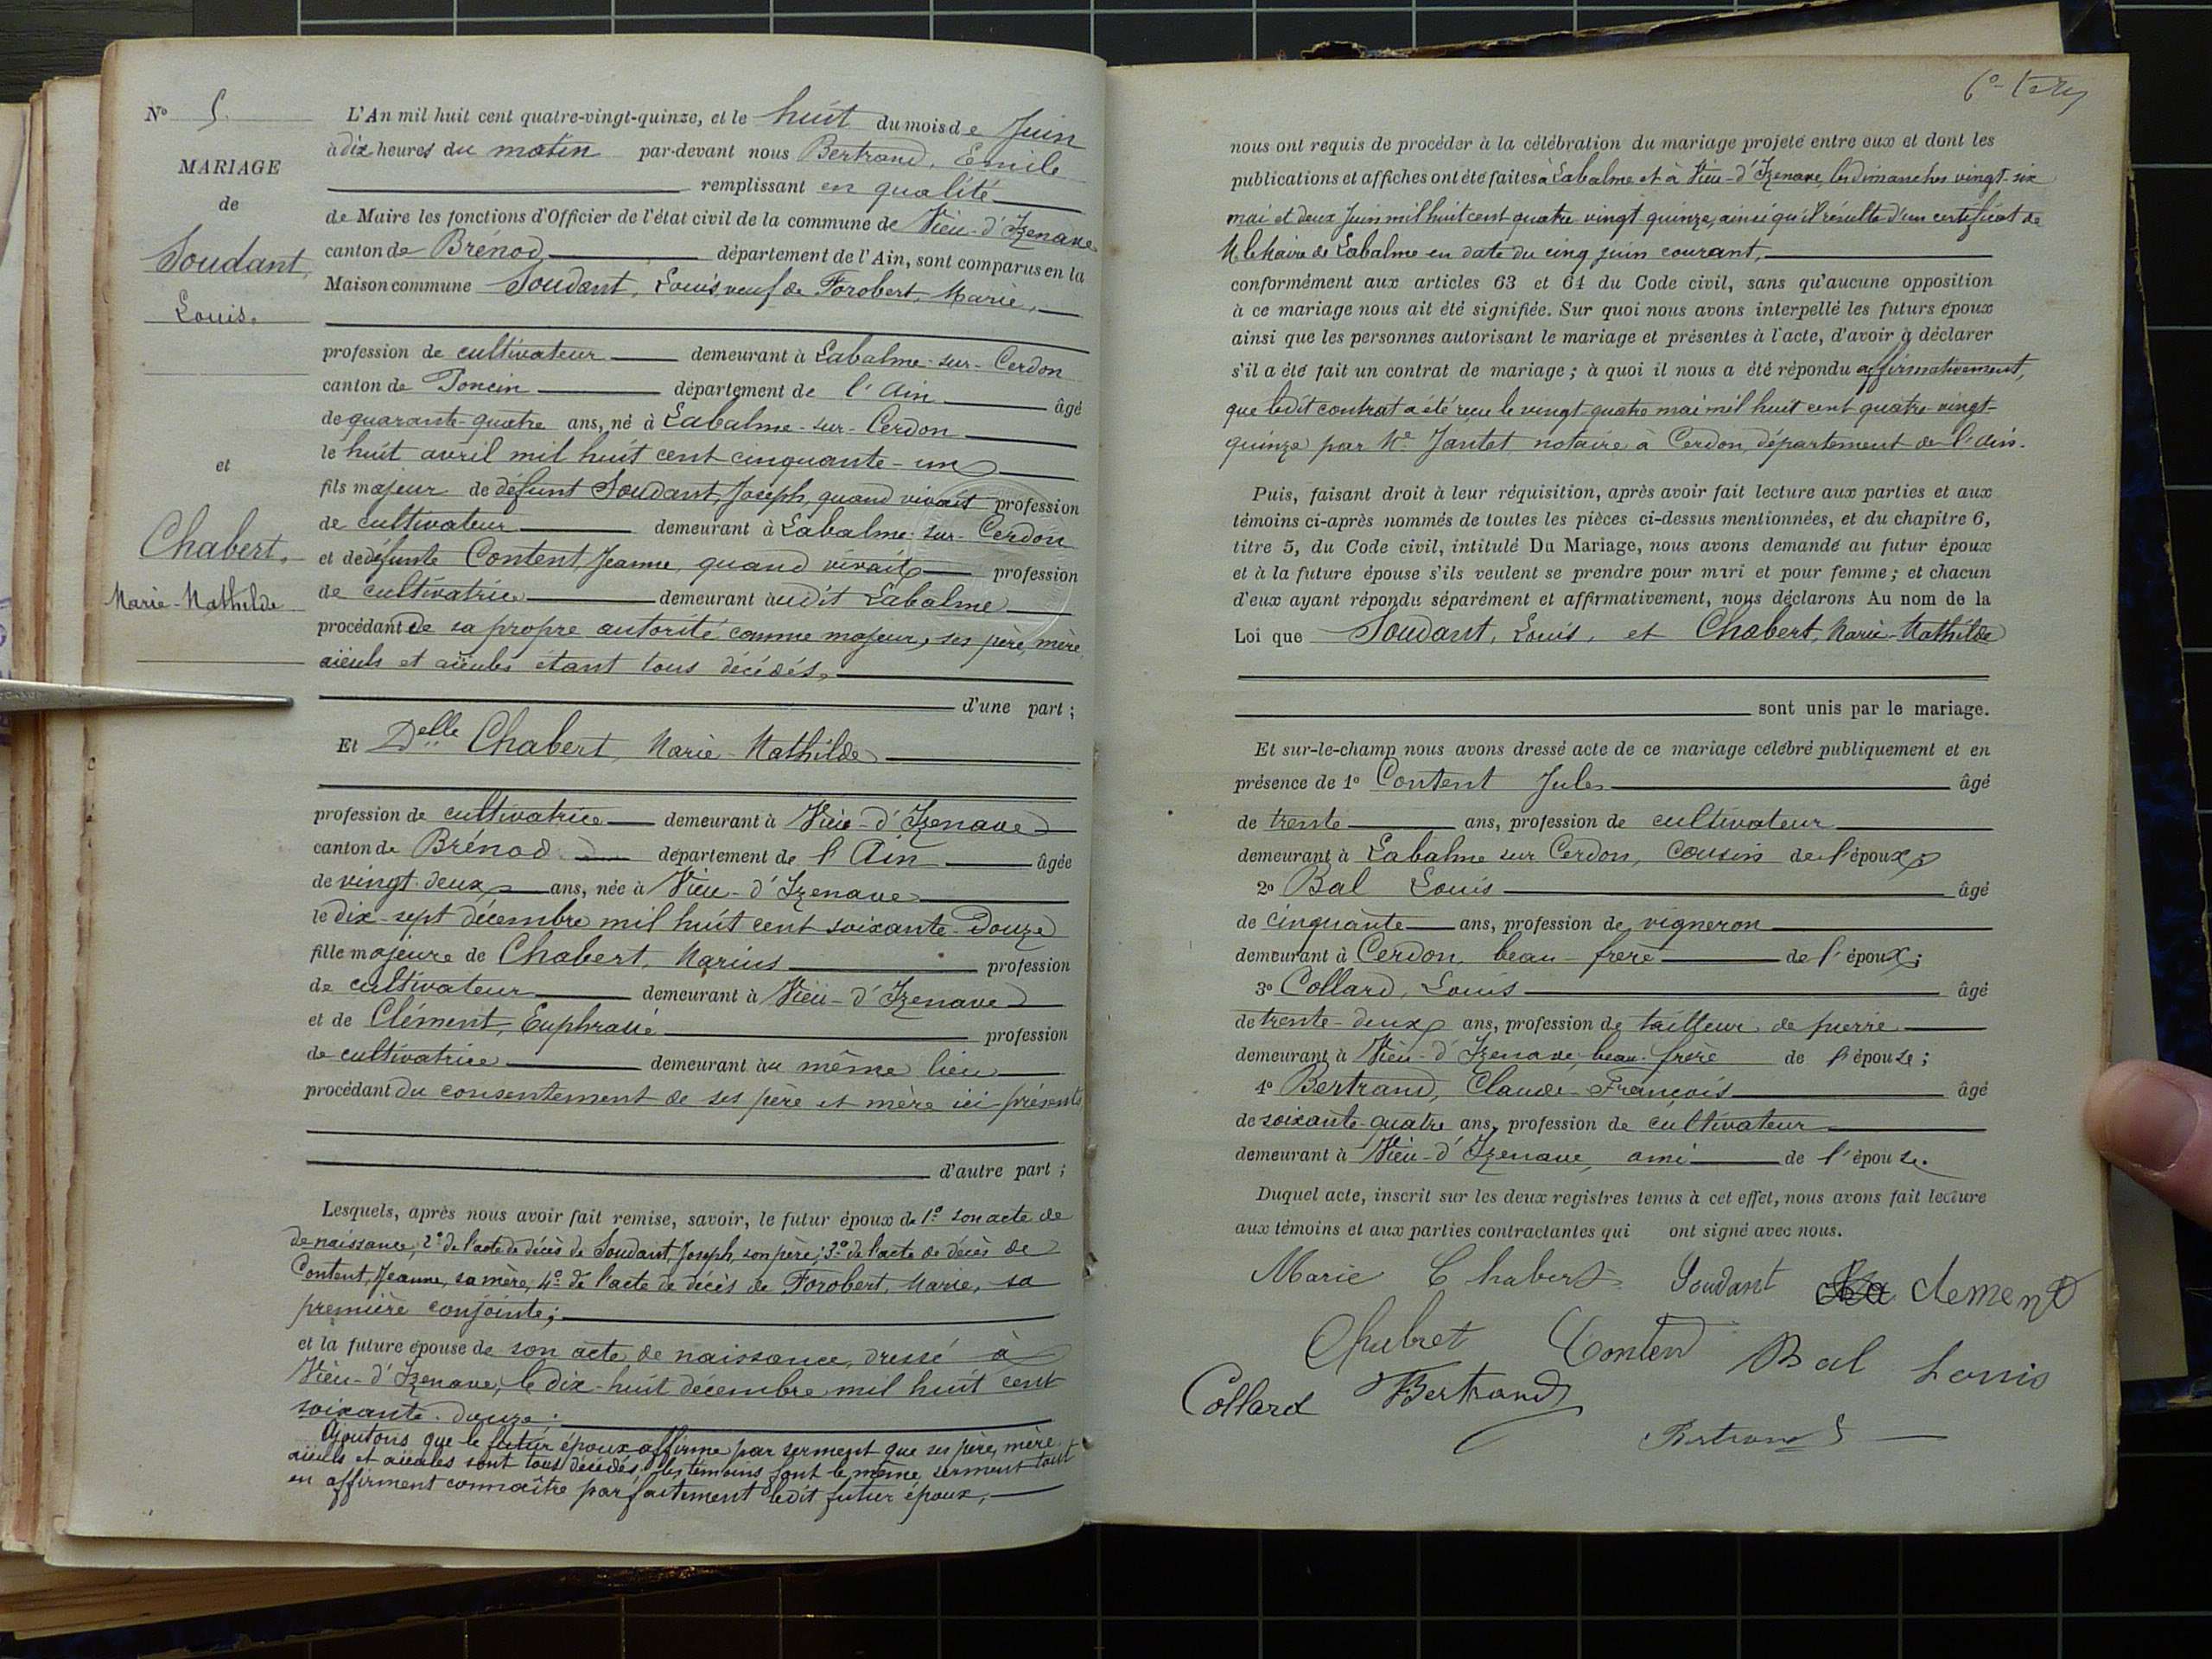 N° 5.
MARIAGE
de
Soudant,
Louis.
et
Chabert,
Marie-Mathilde
L'An mil huit cent quatre-vingt-quinze, et le huit du mois de Juin
à dix heures du matin par-devant nous Bertrand, Emile
remplissant en qualité
de Maire les fonctions d'Officier de l'état civil de la commune de Vieu-d'Izenave
canton de Brénod département de l'Ain, sont comparus en la
Maison commune Soudant, Louis veuf de Forobert, Marie,
profession de cultivateur demeurant à Labalme-sur-Cerdon
canton de Poncin département de l'Ain âgé
de quarante-quatre ans, né à Labalme-sur-Cerdon
le huit avril mil huit cent cinquante-un
fils majeur de défunt Soudant, Joseph, quand vivait profession
de cultivateur demeurant à Labalme-sur-Cerdon
et de défunte Content Jeanne, quand vivait profession
de cultivatrice demeurant audit Labalme
procédant de sa propre autorité comme majeur, ses père, mère,
aïeuls et aïeules étant tous décédés.
d'une part ;
Et Delle Chabert, Marie-Mathilde
profession de cultivatrice demeurant à Vieu-d'Izenave
canton de Brénod département de l'Ain âgée
de vingt-deux ans, née à Vieu-d'Izenave
le dix-sept décembre mil huit cent soixante-Douze
fille majeure de Chabert, Marius profession
de cultivateur demeurant à Vieu-d'Izenave
et de Clément, Euphrasie profession
de cultivatrice demeurant au même lieu
procédant du consentement de ses père et mère ici présents
d'autre part ;
Lesquels, après nous avoir fait remise, savoir, le futur époux de 1° son acte de
de naissance, 2° de l'acte de décès de Soudant, Joseph, son père; 3° de l'acte de décès de
Content, Jeanne, sa mère, 4° de l'acte de décès de Forobert, Marie, sa
première conjointe;
et la future épouse de son acte de naissance, dressé à
Vieu-d'Izenave, le dix-huit décembre mil huit cent
soixante-douze.
Ajoutons que le futur époux affirme par serment que ses père, mère
aïeuls et aïeules sont tous décédés. Les témoins font le même serment tout
en affirment connaître parfaitement ledit futur époux,
nous ont requis de procéder à la célébration du mariage projeté entre eux et dont les
publications et affiches ont été faites à Labalme et à Vieu-d'Izenave, les dimanches vingt-six
mai et deux Juin mil huit cent quatre-vingt-quinze, ainsi qu'il résulte d'un certificat de
M. le Maire de Labalme en date du cinq juin courant,
conformément aux articles 63 et 64 du Code civil, sans qu'aucune opposition
à ce mariage nous ait été signifiée. Sur quoi nous avons interpellé les futurs époux
ainsi que les personnes autorisant le mariage et présentes à l'acte, d'avoir à déclarer
s'il a été fait un contrat de mariage ; à quoi il nous a été répondu affirmativement,
que ledit contrat a été reçu le vingt-quatre mai mil huit cent quatre-vingt-
quinze par Me Jantet, notaire à Cerdon, département de l'Ain.
Puis, faisant droit à leur réquisition, après avoir fait lecture aux parties et aux
témoins ci-après nommés de toutes les pièces ci-dessus mentionnées, et du chapitre 6,
titre 5, du Code civil, intitulé Du Mariage, nous avons demandé au futur époux
et à la future épouse s'ils veulent se prendre pour mari et pour femme ; et chacun
d'eux ayant répondu séparément et affirmativement, nous déclarons Au nom de la
Loi que Soudant, Louis, et Chabert, Marie-Mathilde
sont unis par le mariage.
Et sur-le-champ nous avons dressé acte de ce mariage célébré publiquement et en
présence de 1° Content Jules âgé
de trente ans, profession de cultivateur
demeurant à Labalme sur Cerdon, cousin de l'époux;
2° Bal Louis âgé
de cinquante ans, profession de vigneron
demeurant à Cerdon, beau-frère de l'époux;
3° Collard, Louis âgé
de trente-deux ans, profession de tailleur de pierre
demeurant à Vieu-d'Izenave, beau-frère de l'épouse;
4° Bertrand, Claude-François âgé
de soixante-quatre ans, profession de cultivateur
demeurant à Vieu-d'Izenave, ami de l'épouse.
Duquel acte, inscrit sur les deux registres tenus à cet effet, nous avons fait lecture
aux témoins et aux parties contractantes qui ont signé avec nous.
Marie Chabert Soudant Clement
Chabret Content Bal Louis
Collard Bertrand
Bertrand